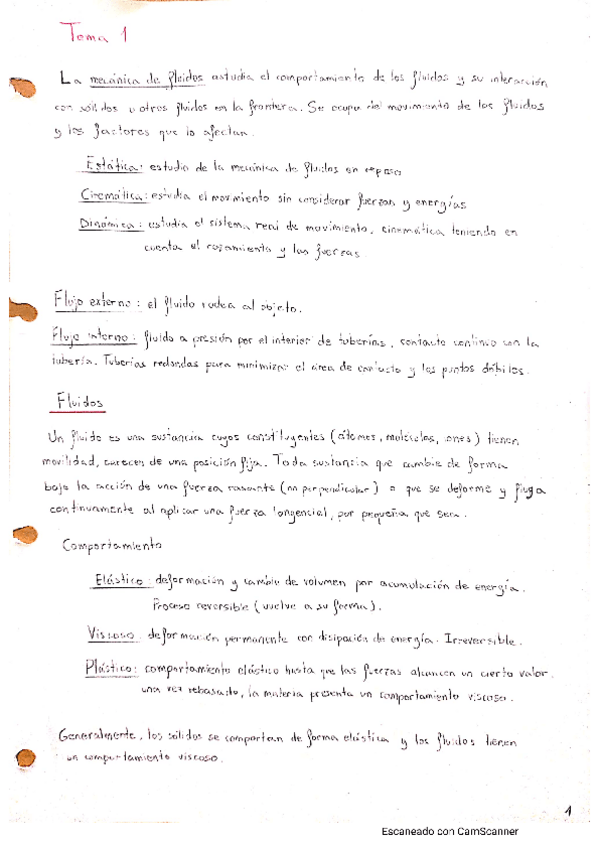 Tema 1
La mecánica de fluidos estudia el comportamiento de los fluidos y su interacción
con sólidos u otros fluidos en la frontera. Se ocupa del movimiento de los fluidos
y los factores que lo afectan.
Estática: estudio de la mecánica de fluidos en reposo
Cinemática: estudia el movimiento sin considerar fuerzas y energías
Dinámica: estudia el sistema real de movimiento, cinemática teniendo en
cuenta el rozamiento y las fuerzas.
Flujo externo: el fluido rodea al objeto.
Flujo interno: fluido a presión por el interior de tuberías, contacto continuo con la
tubería. Tuberías redondas para minimizar el área de contacto y los puntos débiles.
Fluidos
Un fluido es una sustancia cuyos constituyentes (átomos, moléculas, iones) tienen
movilidad, carecen de una posición fija. Toda sustancia que cambie de forma
bajo la acción de una fuerza rasante (no perpendicular) o que se deforme y fluya
continuamente al aplicar una fuerza tangencial, por pequeña que sea.
Comportamiento
Elástico: deformación y cambio de volumen por acumulación de energía.
Proceso reversible (vuelve a su forma).
Viscoso: deformación permanente con disipación de energía. Irreversible.
Plástico: comportamiento elástico hasta que las fuerzas alcancen un cierto valor.
una vez rebasado, la materia presenta un comportamiento viscoso.
Generalmente, los sólidos se comportan de forma elástica y los fluidos tienen
un comportamiento viscoso.
1
Escaneado con CamScanner